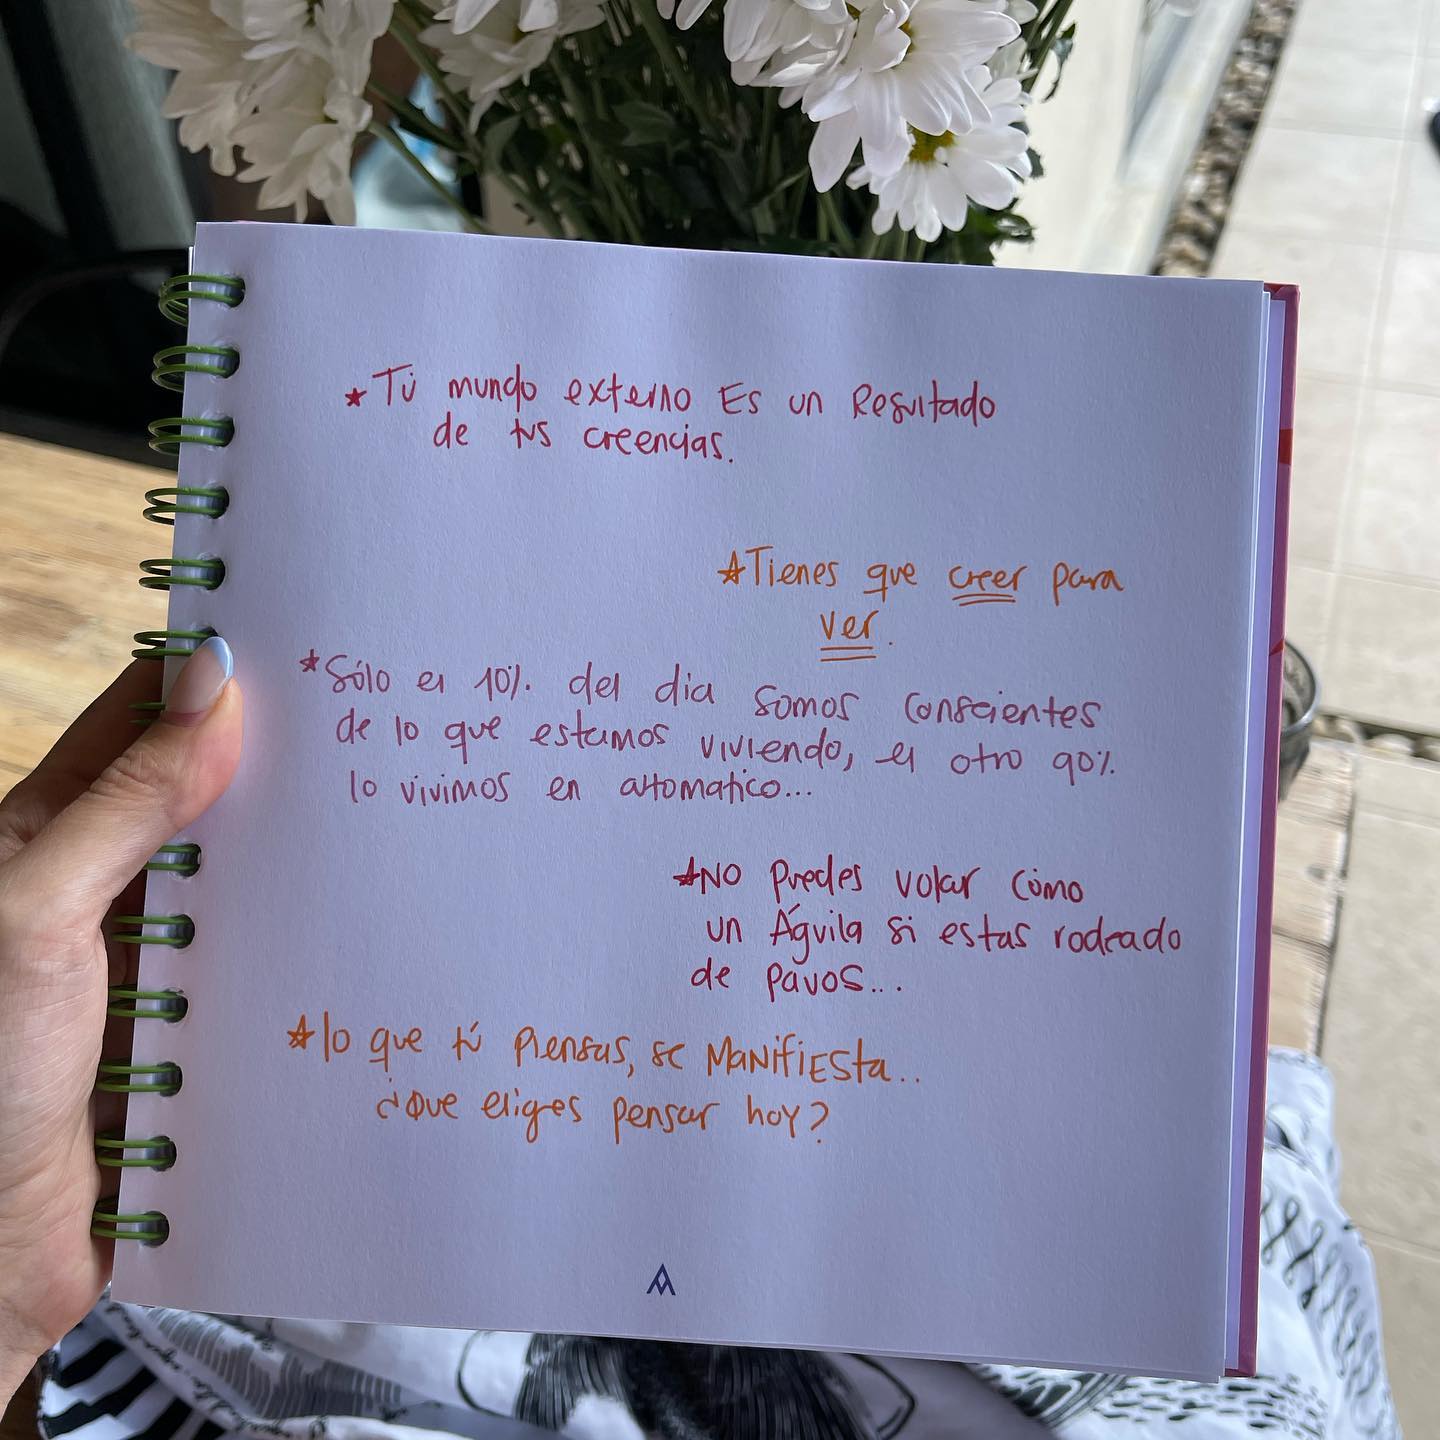 ★ Tú mundo externo Es un Resultado
de tus creencias.
★ Tienes que creer para
ver.
★ Sólo el 10% del dia somos conscientes
de lo que estamos viviendo, el otro 90%
lo vivimos en automatico...
★ NO puedes volar cómo
un Águila si estas rodeado
de pavos...
★ lo que tú piensas, se MaNifiEsta..
¿Que eliges pensar hoy?